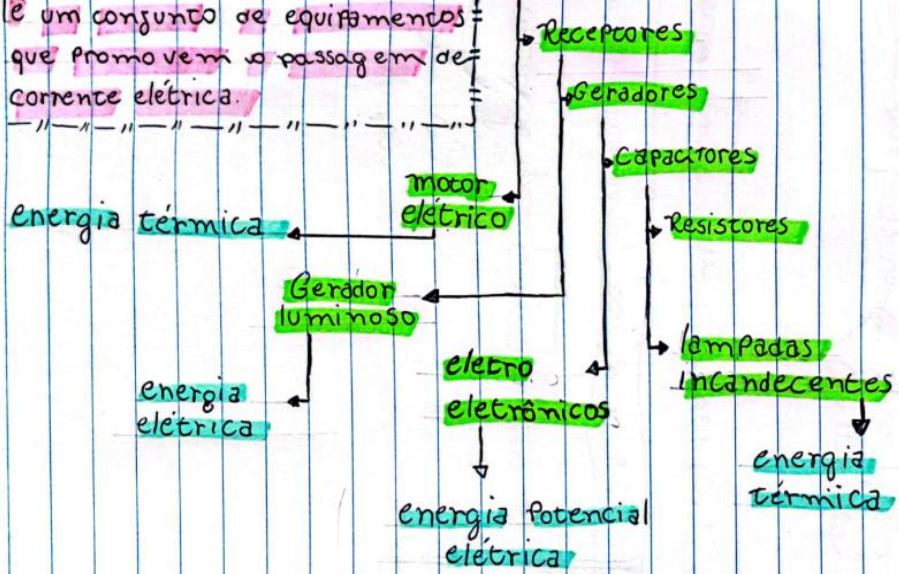 é um conjunto de equipamentos
que promovem o passagem de
corrente elétrica.
Receptores
Geradores
Capacitores
Resistores
motor
elétrico
energia térmica
Gerador
luminoso
energia
elétrica
eletro
eletrônicos
energia potencial
elétrica
lampadas
incandecentes
energia
térmica